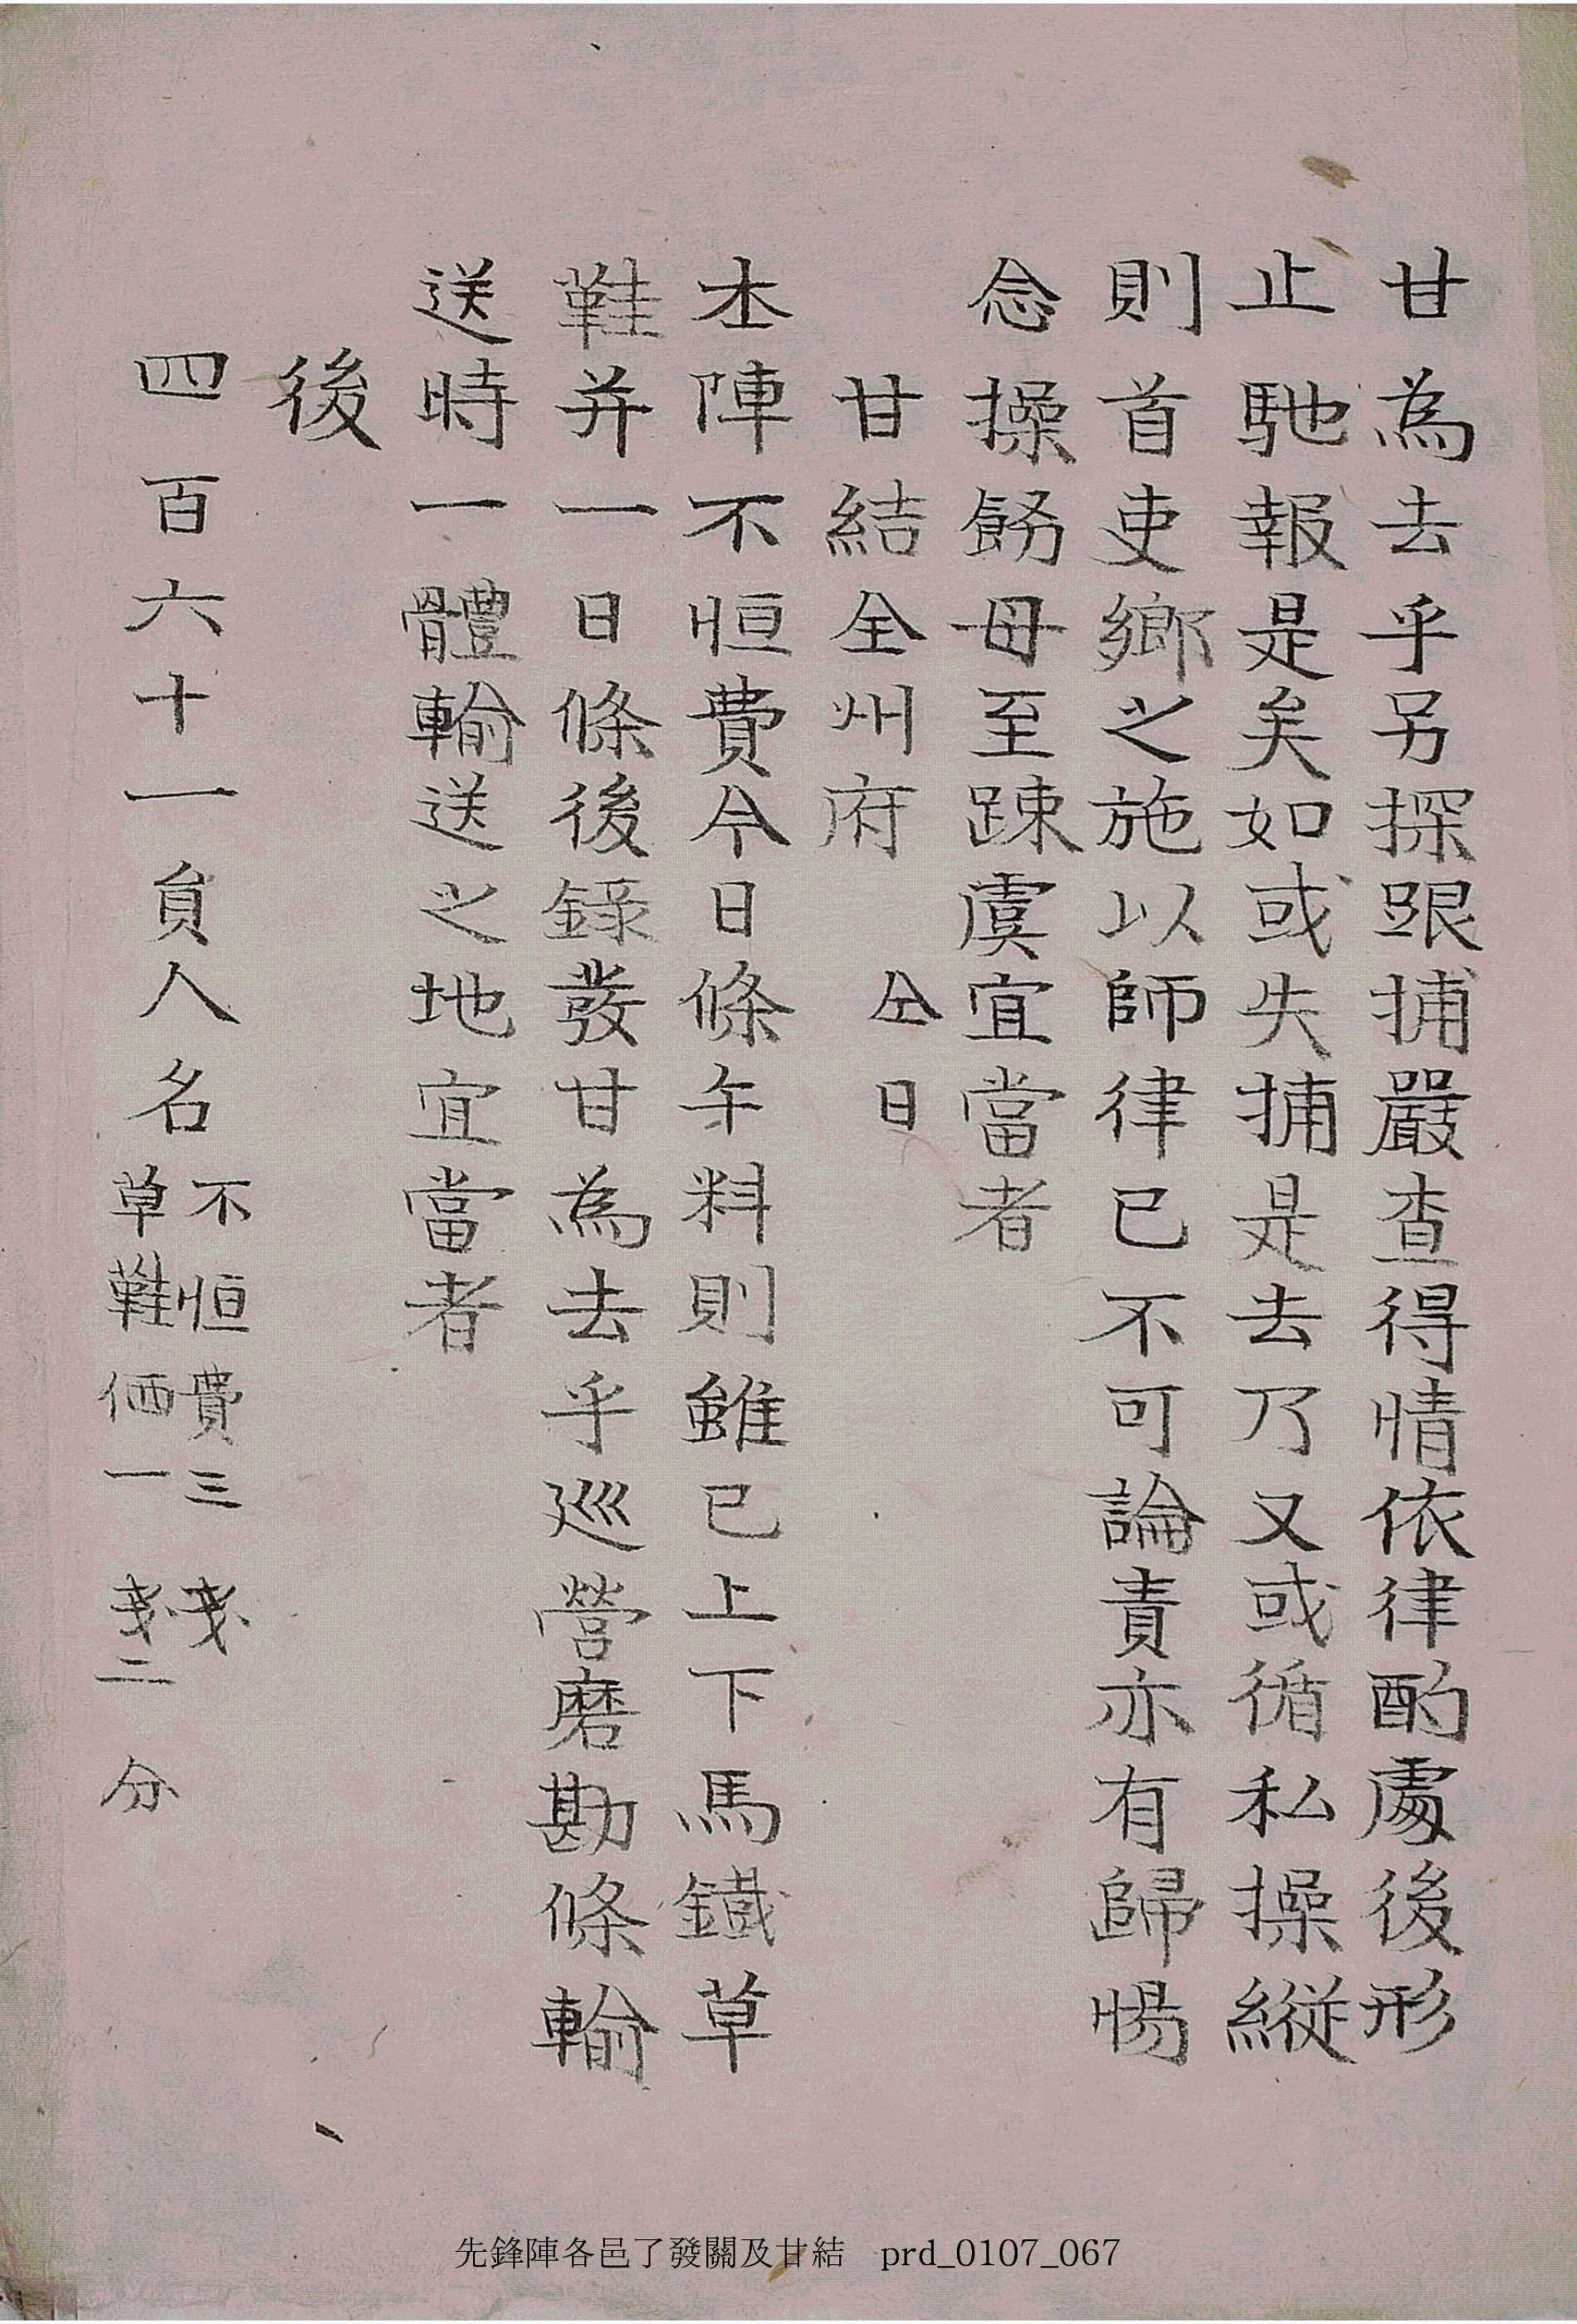 甘為去乎另探跟捕嚴查得情依律酌處後形
止馳報是矣如或失捕是去乃又或循私操縱
則首吏鄕之施以師律已不可論責亦有歸惕
念操飭毋至踈虞宜當者
甘結全州府 仝日
本陣不恒費今日條午料則雖已上下馬鐵草
鞋并一日條後錄發甘為去乎巡營磨勘條輸
送時一體輸送之地宜當者
後
四百六十一員人名 不恒費三戔
草鞋価一戔二分
先鋒陣各邑了發關及甘結 prd_0107_067